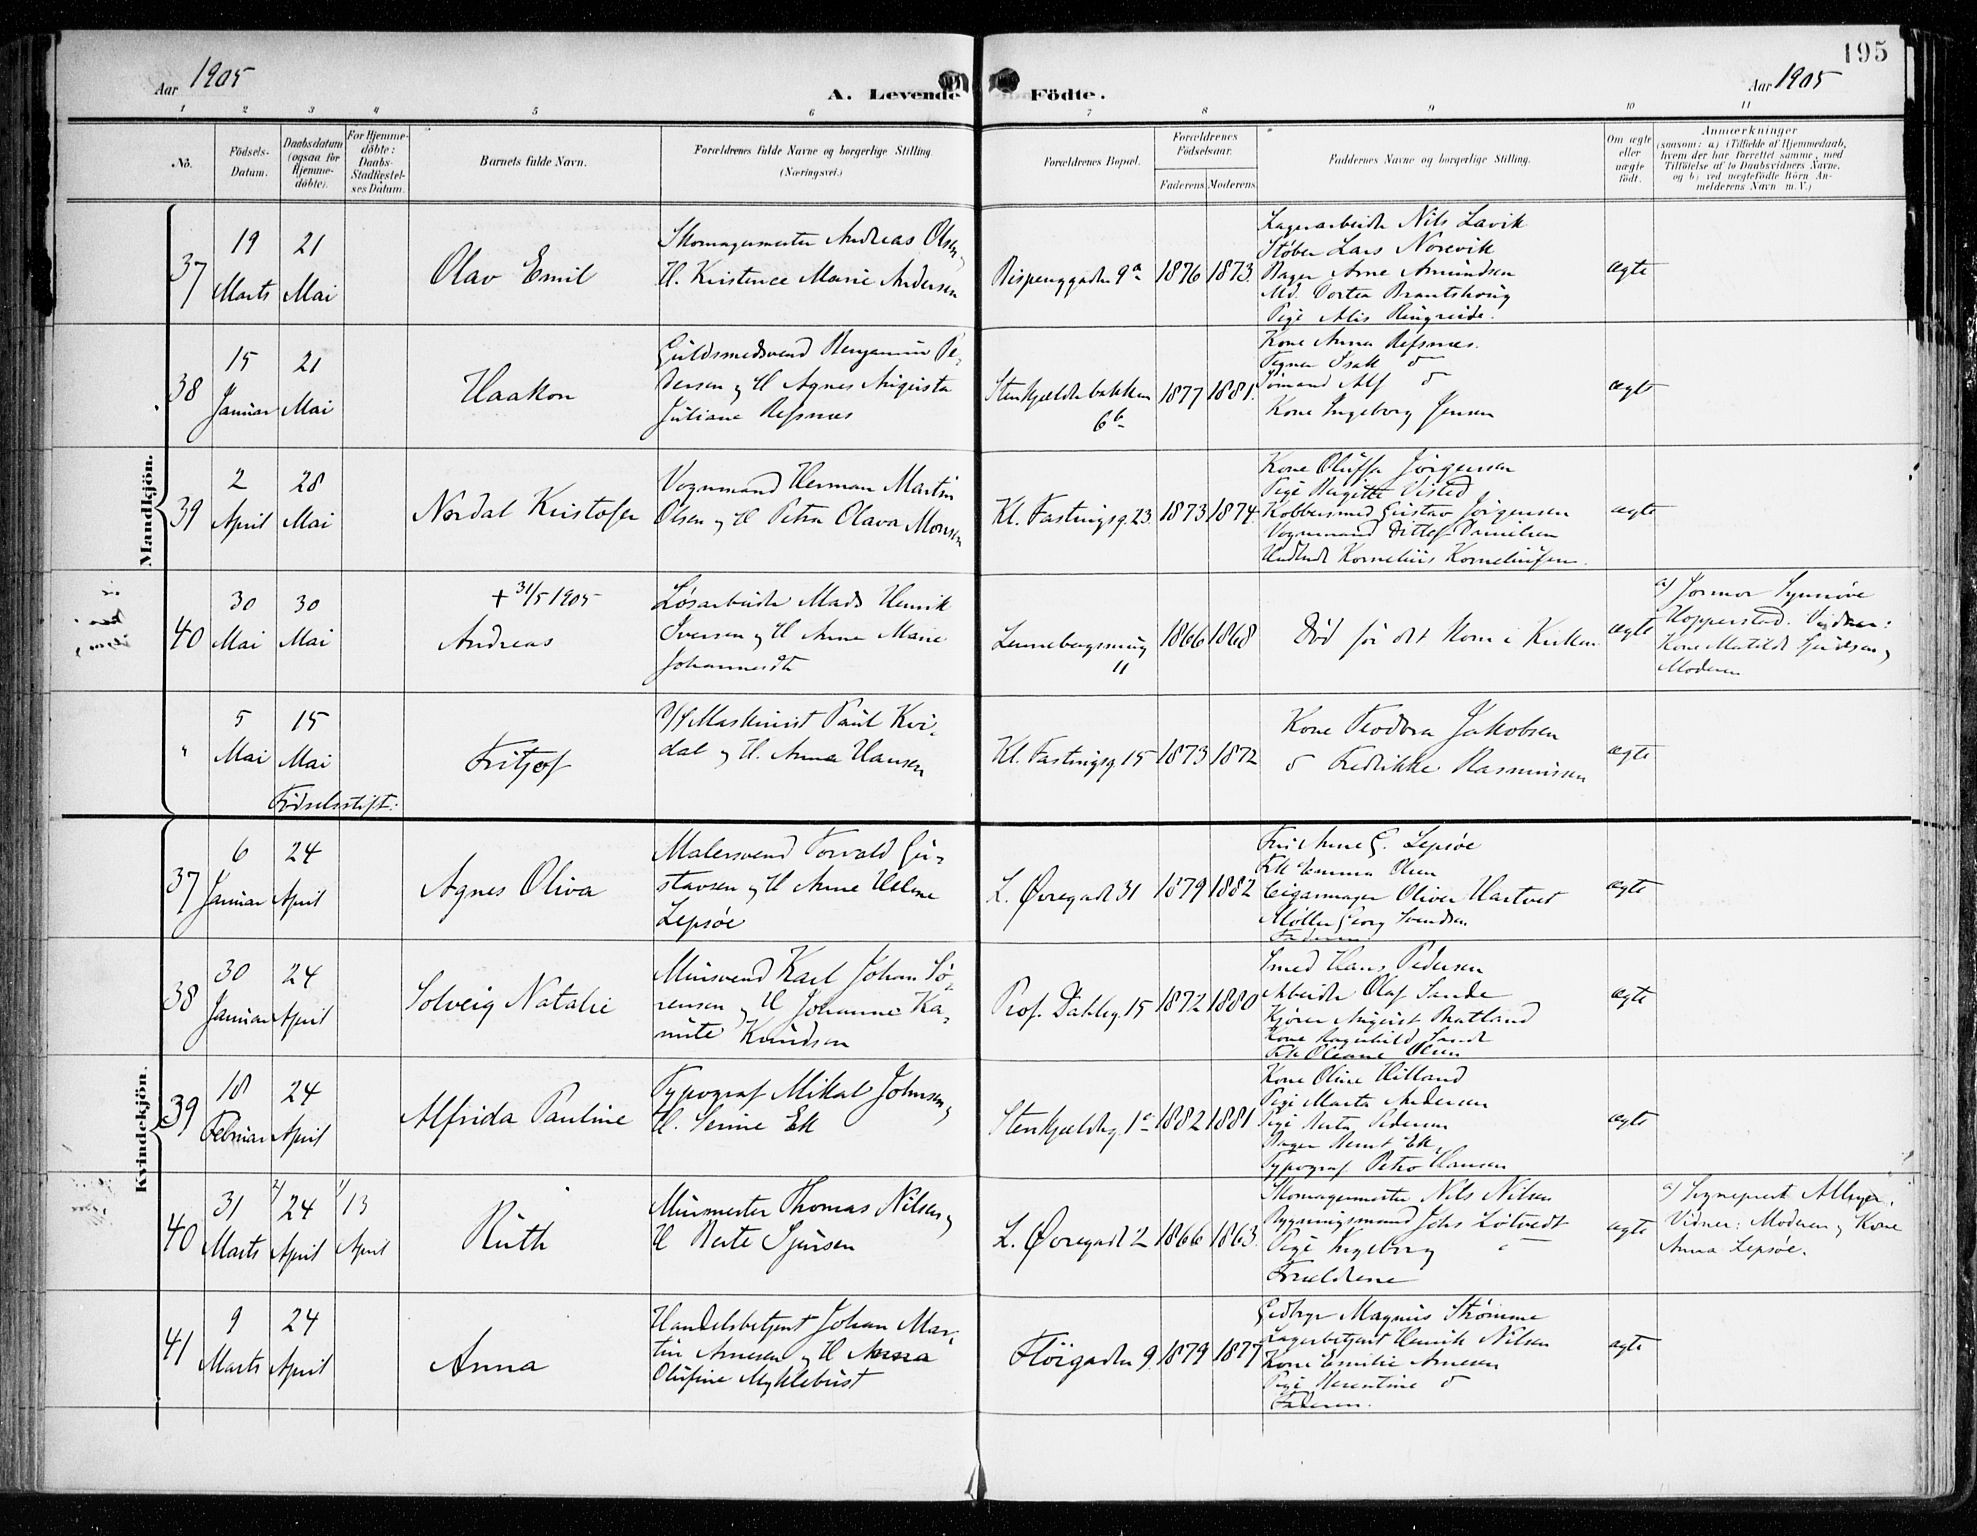 195
Aar 1905
A. Levende Fødte.
Aar 1905
1 2 3 4 5 6 7 8 9 10 11
No.
Fødsels-
Datum.
Daabsdatum
(ogsaa for
Hjemme-
døbte).
For Hjemme-
døbte:
Daabs-
Stadfæstel-
ses Datum.
Barnets fulde Navn.
Forældrenes fulde Navne og borgerlige Stilling.
(Næringsvei.)
Forældrenes Bopæl.
Forældrenes
Fødselsaar.
Faderens Moderens
Faddernes Navne og borgerlige Stilling.
Om ægte
eller
uægte
født.
Anmærkninger
(saasom: a) i Tilfælde af Hjemmedaab,
hvem der har forrettet samme, med
Tilføielse af to Daabsvidners Navne,
og b) ved uægtefødte Börn An-
melderens Navn m. V.)
Mandkjön.
37
19
Marts
21
Mai
Olav Emil
Skomagermester Andreas Olsen
H. Kristence Marie Andersen
9a
1876 1873
Lagerarbeider Nils Lavik
Støber Lars Norevik
Bager Arne Amundsen
Md. Dortea
Pige Alis
ægte
38
15
Januar
21
Mai
Haakon
Guldsmedsvend Benjamin Pe-
dersen og H Agnes Augusta
Juliane Refsnæs
Stenkjældebakken
6b
1877 1881
Kone Anna Refsnæs.
Tegner Isak do
Sömand Alf do
Kone Ingeborg Jensen
ægte
39
2
April
28
Mai
Nordal Kristofer
Vognmand Herman Martin
Olsen og H Petra Olava Monsen
Kl. Fastingsg. 23
1873 1874
Kone Oluffa Jörgensen
Pige Birgitte Visted
Kobbersmed Gustav Jörgensen
Vognmand Ditlef Danielsen
Kornelius Korneliussen.
ægte
40
30
Mai
30
Mai
+ 31/5 1905
Andreas
Løsarbeider Mads Henrik
Iversen og H Anna Marie
Johannesdtr
11
1866 1868
Död før det kom i Kirken
ægte
a) Jormor Synnöve
Hopperstad. Vidner:
Kone Matilde
Moderen
"
5
Mai
15
Mai
Fritjof
Maskinist Paul Kvi-
dal og H. Anna Hansen
Kl. Fastingsg 15
1873 1872
Kone Teodora Jakobsen
do Fredrikke Rasmussen
ægte
Födselsstift:
Kvindekjön.
37
6
Januar
24
April
Agnes Oliva
Malersvend Torvald Gu-
stavsen og H Anne Helene
Lepsöe
L. Øvregade 31
1879 1882
Anne G. Lepsöe
Frk Emma Olsen
Cigarmager Oliver Hartvet
Møller Georg Svendsen
Faderen
ægte
38
30
Januar
24
April
Solveig Natalie
Mursvend Karl Johan Sö-
rensen og H Johanne Ka-
mite Knudsen
Prof. Dahlsg. 15
1872 1880
Smed Hans Pedersen
Arbeider Olaf Sande
Kjører August Bratland
Kone Ragnhild Sande
Frk Oleane Olsen
ægte
39
18
Februar
24
April
Alfrida Pauline
Typograf Mikal Johnsen og
H. Serine Ek
Stenkjeldeg 1a
1882 1881
Kone Oline Hilland
Pige Marta Andersen
Pige Berta Pedersen
Bager Bernt Ek
Typograf Petro Hansen
ægte
40
31
Marts
2/ 24
April
1/ 13
April
Ruth
Murmester Thomas Nilsen og
H Berte Sjursen
L. Øvregade 2
1866 1863
Skomagermester Nils Nilsen
Bygningsmand Johs Lötvedt
Pige Ingeborg
Forældrene
ægte
a) Sogneprest
Vidner: Moderen og Kone
Anna Lepsöe.
41
9
Marts
24
April
Anna
Handelsbetjent Johan Mar-
tin Arnesen og H Anna
Olufine Myklebust
Flöigaden 9
1879 1877
Magnus Strømme
Lagerbetjent Henrik Nilsen
Kone Emilie Arnesen
Pige Berentine do
Faderen.
ægte